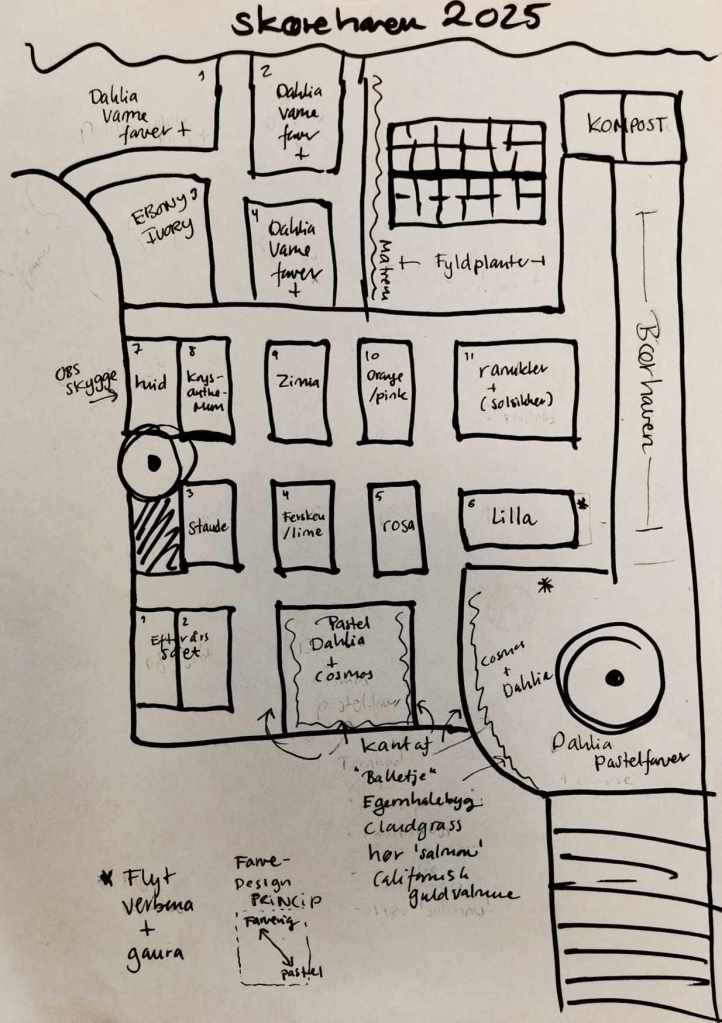 skærehaven 2025
1
Dahlia
varme
farver +
2
Dahlia
varme
farver
+
KOMPOST
EBONY 3
IVORY
4
Dahlia
varme
farver
+
Matrem
Fyldplanter
Bærhaven
OBS
skygge
7
hvid
8
Krys-
anthe-
mum
9
Zinnia
10
Orange
/pink
11
ranukler
+
(solsikker)
3
Staude
4
Fersken
/lime
5
rosa
6
Lilla
*
1
2
Efterårs
sået
Pastel
Dahlia
+
cosmos
*
cosmos
+
Dahlia
Dahlia
pastelfarver
Kant af
"Balletje"
Egernhalebyg
Cloudgrass
hør 'salmon'
Californisk
guldvalmue
* Flyt
verbena
+
gaura
Farve-
Design
PRINCIP
Farverig
pastel